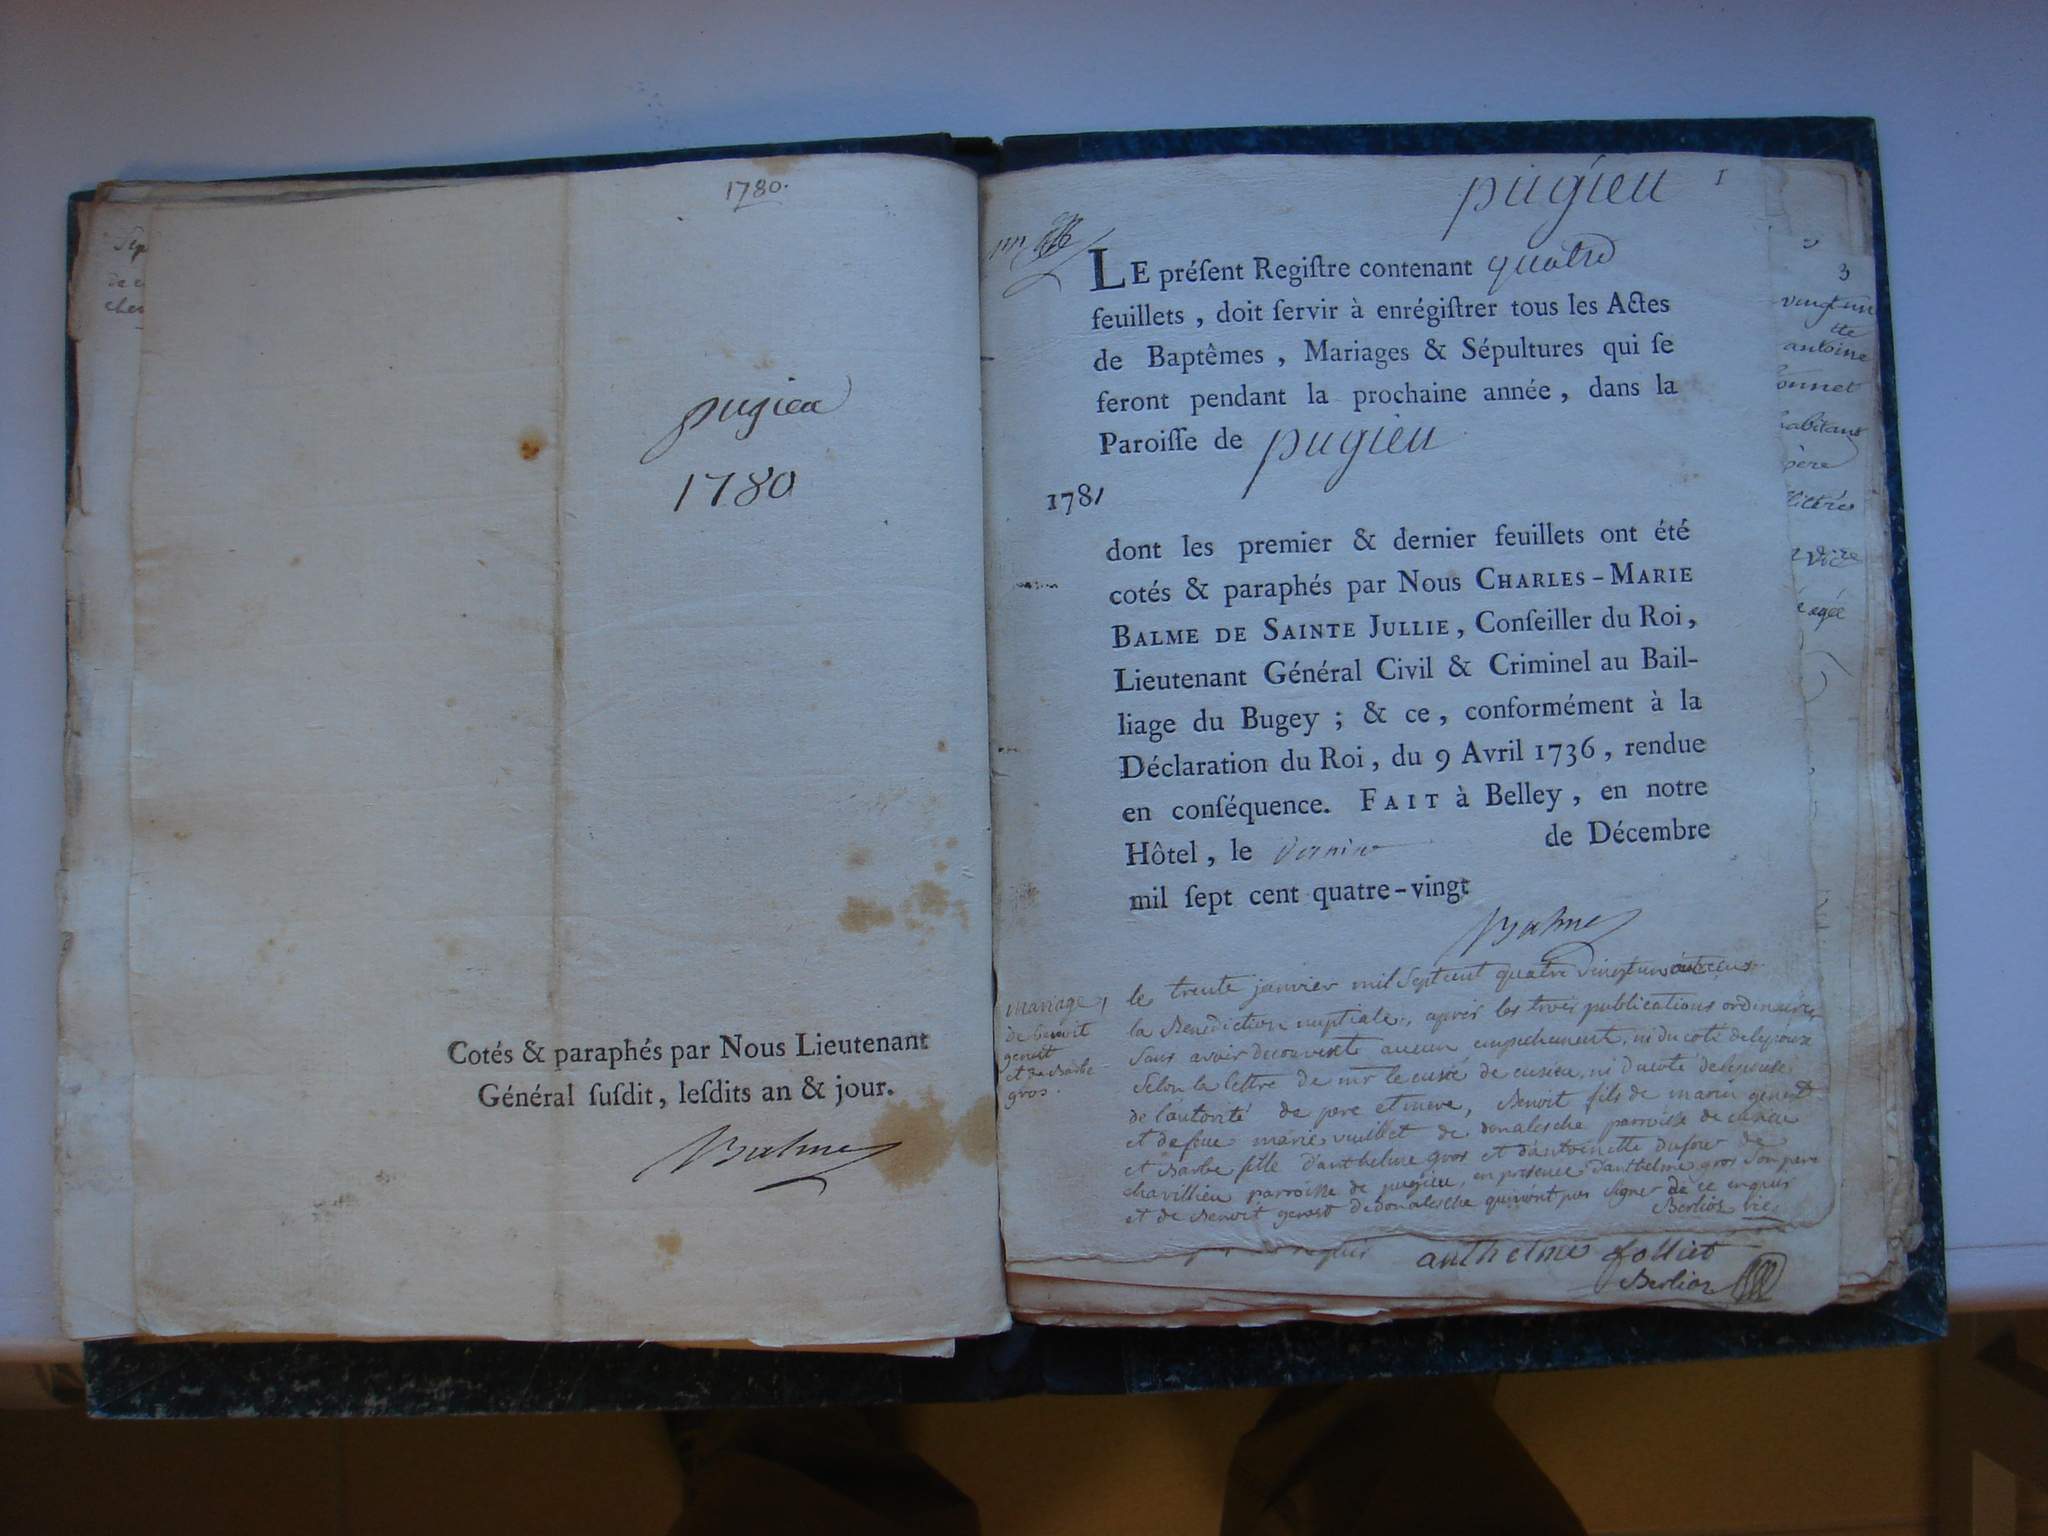 1780.
pugieu
1780
Cotés & paraphés par Nous Lieutenant
Général ſuſdit, leſdits an & jour.
Balme
pugieu 1
LE préſent Regiſtre contenant quatre
feuillets, doit ſervir à enrégiſtrer tous les Actes
de Baptêmes, Mariages & Sépultures qui ſe
feront pendant la prochaine année, dans la
Paroiſſe de pugieu
1781
dont les premier & dernier feuillets ont été
cotés & paraphés par Nous CHARLES-MARIE
BALME DE SAINTE JULLIE, Conſeiller du Roi,
Lieutenant Général Civil & Criminel au Bail-
liage du Bugey; & ce, conformément à la
Déclaration du Roi, du 9 Avril 1736, rendue
en conſéquence. FAIT à Belley, en notre
Hôtel, le dernier de Décembre
mil ſept cent quatre-vingt
Balme
mariage
de benoit
genest
et de Barbe
gros.
le trente janvier mil Sept cent quatre vingt un ont reçus
la Benediction nuptiale, après les trois publications ordinaires
Sans avoir decouvert aucun empechement, ni du coté de lepoux
Selon la lettre de mr le curé de cusieu, ni du coté de lepouse
de l'autorité de pere et mere, Benoit fils de marin genest
et de feue marie vuillet de donalesche parroisse de cusieu
et Barbe fille d'anthelme gros et d'antoinette dufour de
chavillieu parroisse de pugieu, en presence d'anthelme gros Son pere
et de Benoit genest de donalesche qui n'ont pas Signer de ce enquis
Berlioz vic
anthelme folliet
Berlioz
3
vingt un
antoine
onnet
habitant
père
vic
agée